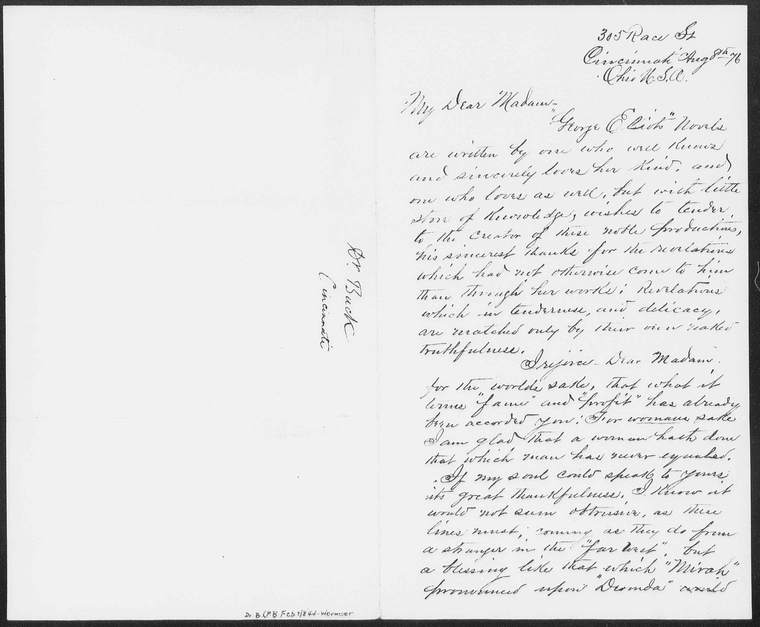 305 Race St
Cincinnati Aug 8th 76
Ohio U.S.A.
My Dear Madam—
"George Eliots" Novels
are written by one who well knows
and sincerely loves her kind, and
one who loves as well, but with little
store of knowledge, wishes to tender
to the creator of these noble productions,
his sincerest thanks for the revelations
which had not otherwise come to him
than through her works; Revelations
which in tenderness, and delicacy,
are matched only by their own naked
truthfulness.
I rejoice Dear Madam
for the worlds sake, that what it
terms "fame" and "profit" has already
been accorded you: For womans sake
I am glad that a woman hath done
that which man has never equaled.
If my soul could speak to yours
its great thankfulness. I know it
would not seem obtrusive, as these
lines must, coming as they do from
a stranger in the "far West". but
a blessing like that which "Mirah"
pronounced upon "Deronda" would
Dr. Buck
Cincinnati